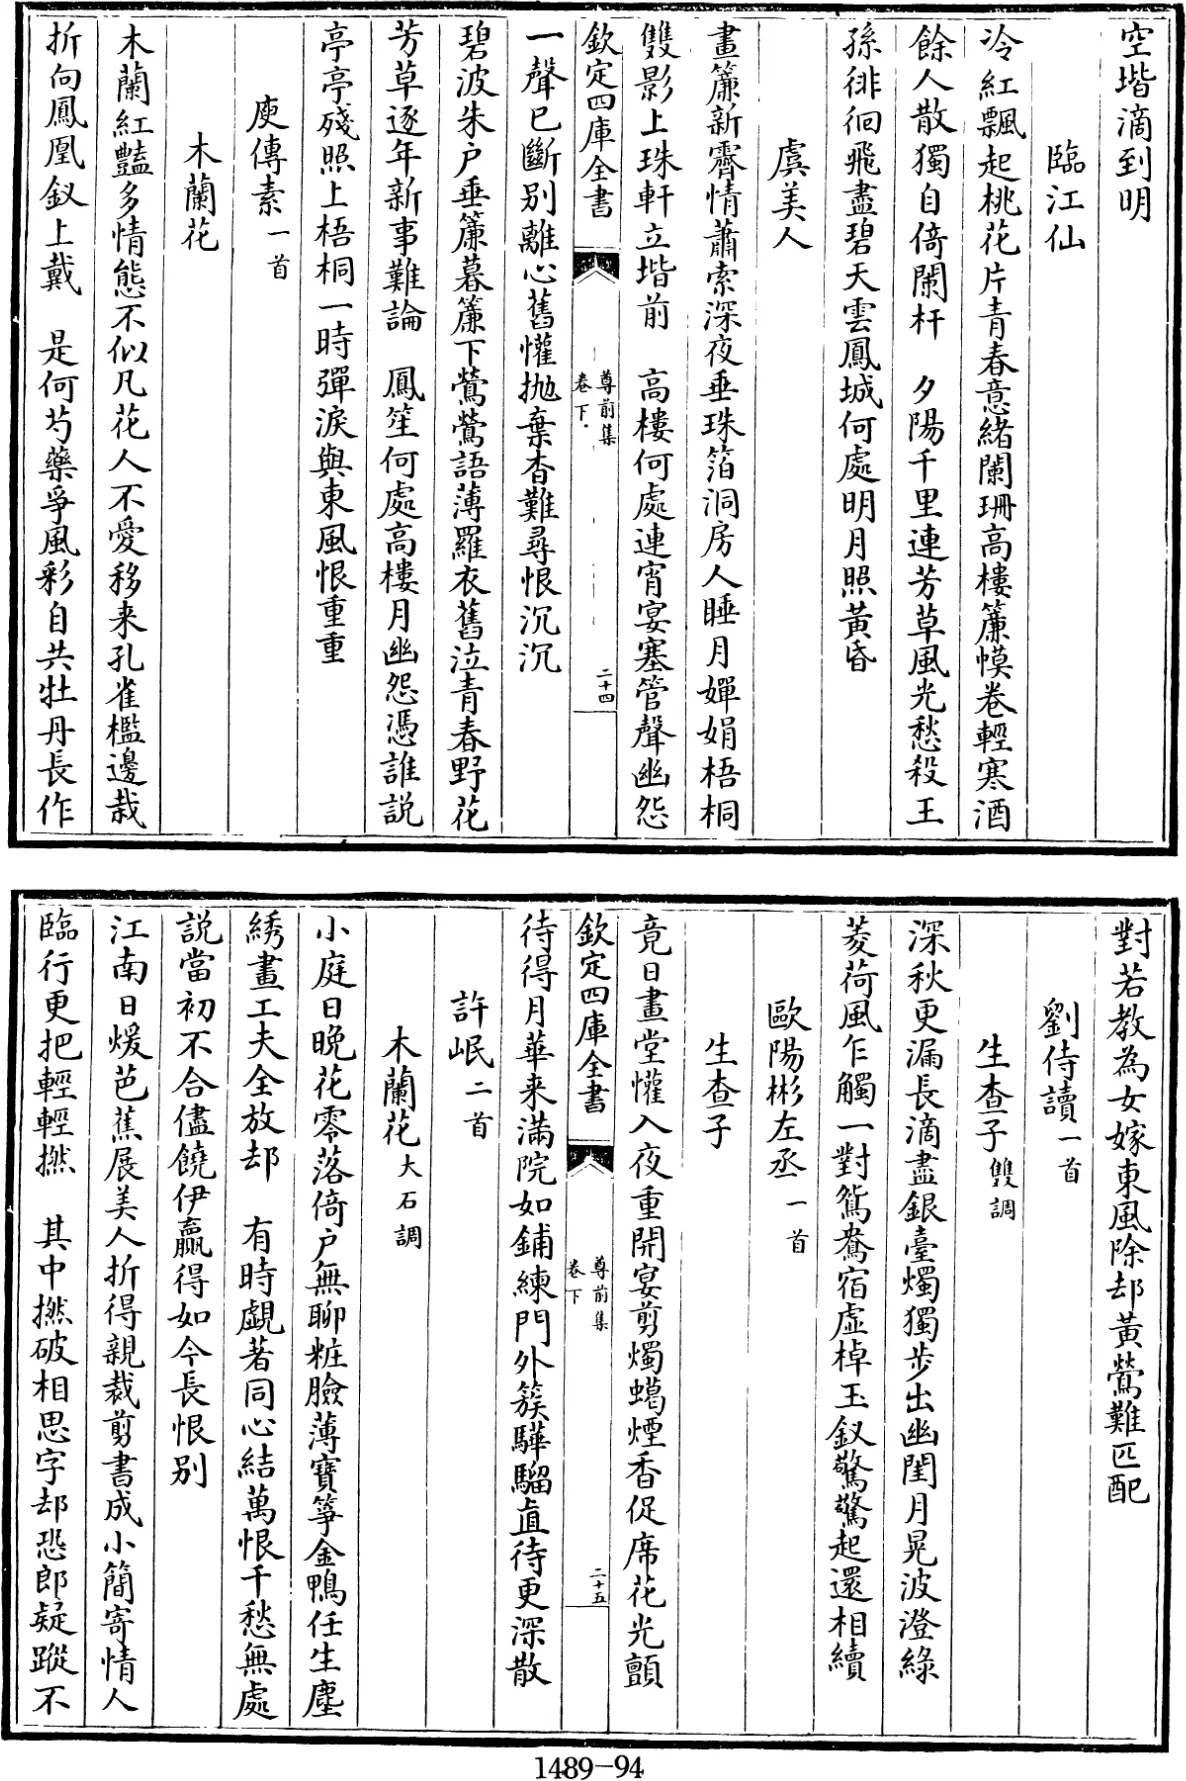 空堦滴到明
臨江仙
冷紅飄起桃花片青春意緒闌珊高樓簾幙卷輕寒酒
餘人散獨自倚闌杆　夕陽千里連芳草風光愁殺王
孫徘徊飛盡碧天雲鳳城何處明月照黃昏
虞美人
畫簾新霽情蕭索深夜垂珠箔洞房人睡月嬋娟梧桐
雙影上珠軒立堦前　高樓何處連宵宴塞管聲幽怨
欽定四庫全書
尊前集
卷下
二十四
一聲已斷別離心舊懽抛棄杳難尋恨沉沉
碧波朱户垂簾暮簾下鶯鶯語薄羅衣舊泣青春野花
芳草逐年新事難論　鳳笙何處高樓月幽怨憑誰説
亭亭殘照上梧桐一時彈淚與東風恨重重
庾傳素一首
木蘭花
木蘭紅豔多情態不似凡花人不愛移来孔雀檻邊栽
折向鳳凰釵上戴　是何芍藥爭風彩自共牡丹長作
對若教為女嫁東風除却黃鶯難匹配
劉侍讀一首
生查子雙調
深秋更漏長滴盡銀臺燭獨步出幽閨月晃波澄綠
菱荷風乍觸一對鴛鴦宿虚棹玉釵驚驚起還相續
歐陽彬左丞一首
生查子
竟日畫堂懽入夜重開宴剪燭蠟煙香促席花光顫
欽定四庫全書
尊前集
卷下
二十五
待得月華来滿院如鋪練門外簇驊騮直待更深散
許岷二首
木蘭花大石調
小庭日晚花零落倚户無聊粧臉薄寶箏金鴨任生塵
綉畫工夫全放却　有時覷著同心結萬恨千愁無處
説當初不合儘饒伊贏得如今長恨别
江南日煖芭蕉展美人折得親裁剪書成小簡寄情人
臨行更把輕輕撚　其中撚破相思字却恐郎疑蹤不
1489-94